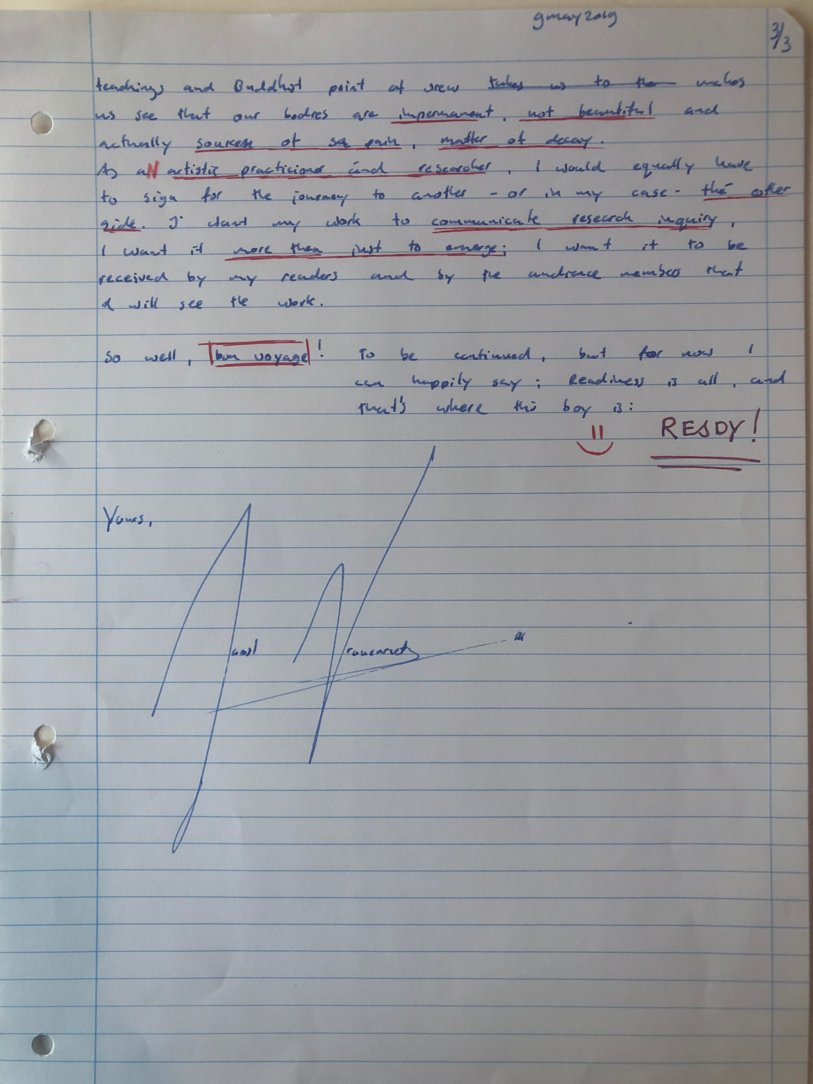 9may2019
3/3
teachings and Buddhist point of view takes us to the makes
us see that our bodies are impermanent, not beautiful and
actually sources of pain, matter of decay.
As aN artistic practicioner and researcher, I would equally have
to sign for the journey to another - or in my case - the other
side. I want my work to communicate research inquiry,
I want it more then just to emerge; I want it to be
received by my readers and by the audience members that
will see the work.
So well, bon voyage! To be continued, but for now I
can happily say; Readiness is all, and
that's where this boy is:
READY!
Yours,